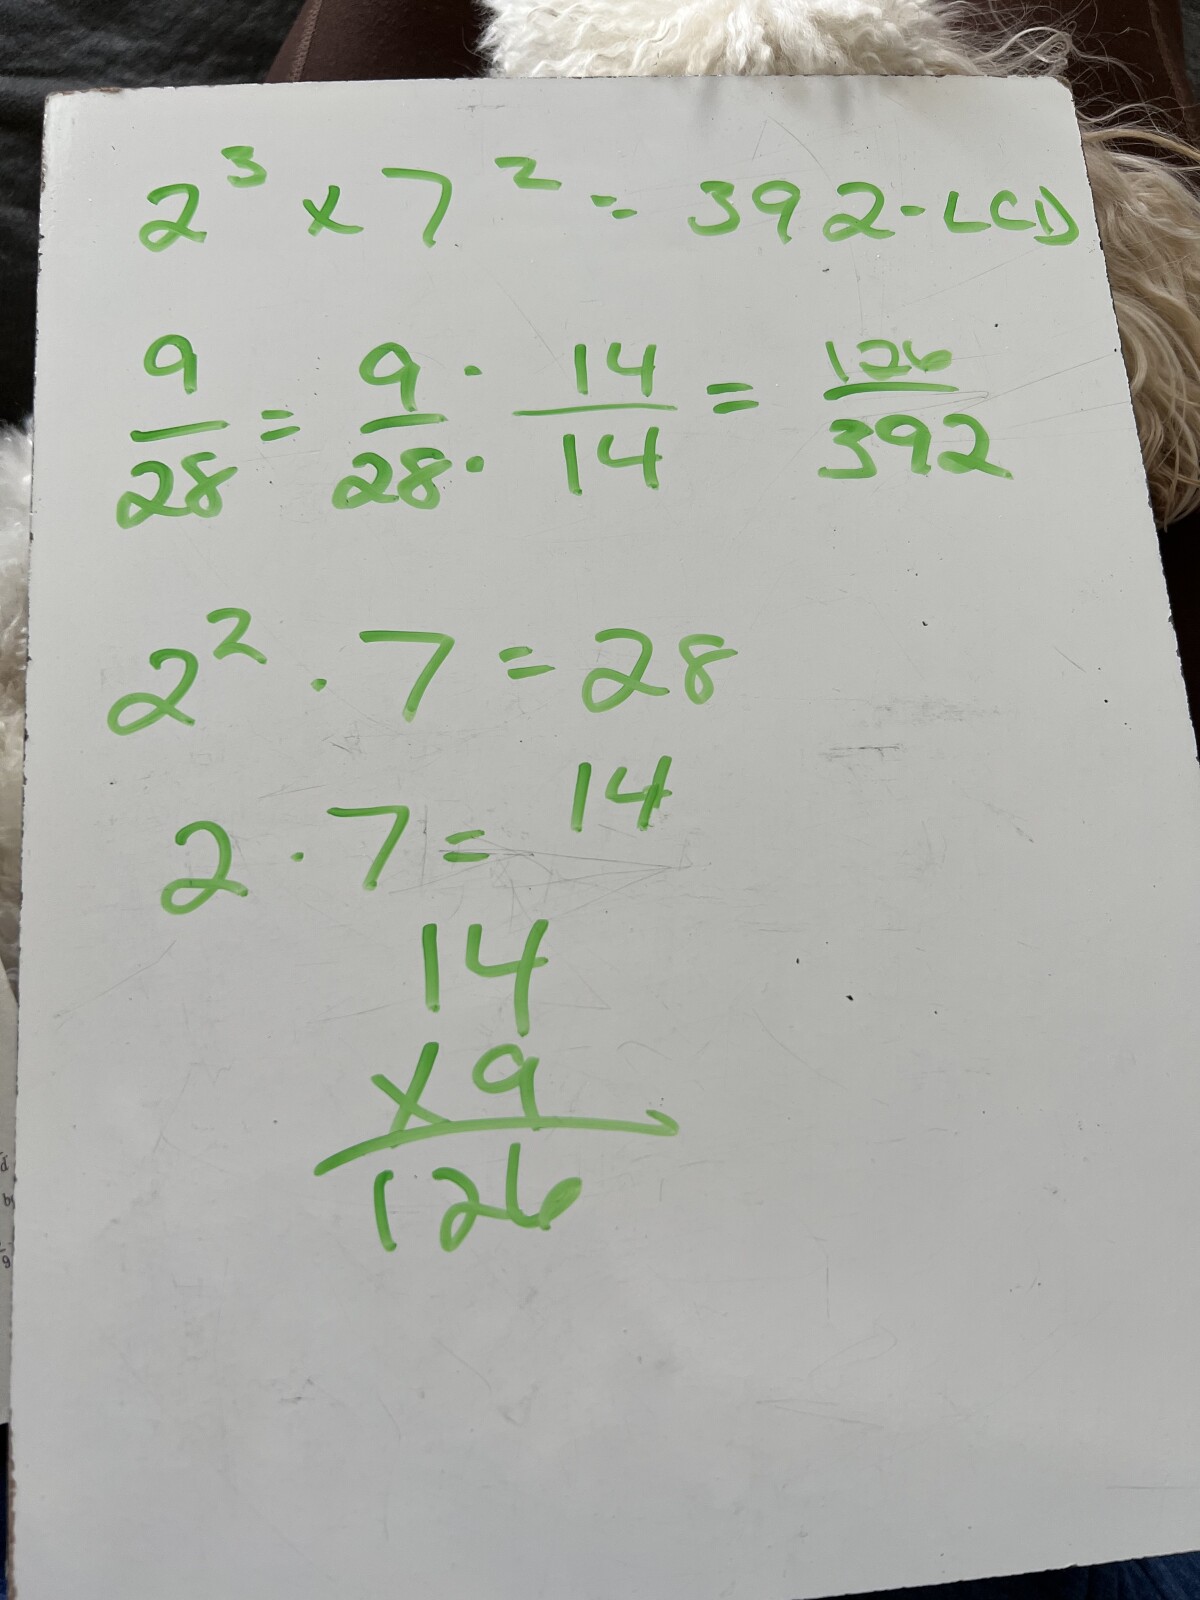 2³ x 7² = 392 - LCD
9/28 = 9/28 · 14/14 = 126/392
2² · 7 = 28
2 · 7 = 14
14
x 9
126